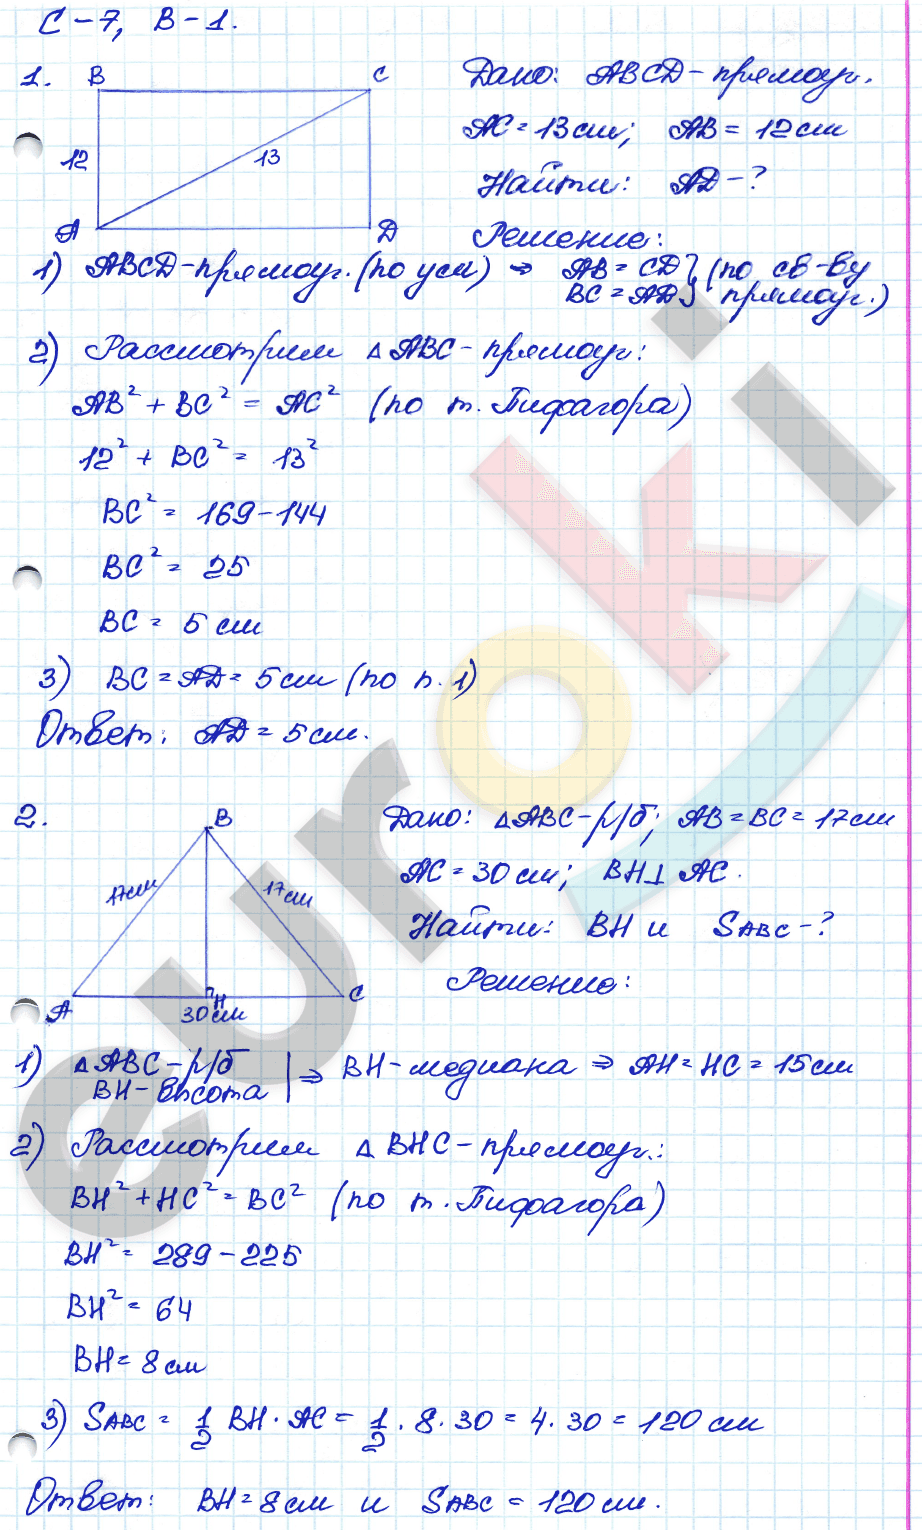 С-7, В-1.
1. B C
12 13
A D
Дано: ABCD - прямоуг.
AC = 13 см; AB = 12 см
Найти: AD - ?
Решение:
1) ABCD - прямоуг. (по усл) ⇒ AB = CD } (по св-ву
BC = AD } прямоуг.)
2) Рассмотрим △ ABC - прямоуг:
AB² + BC² = AC² (по т. Пифагора)
12² + BC² = 13²
BC² = 169 - 144
BC² = 25
BC = 5 см
3) BC = AD = 5 см (по п. 1)
Ответ: AD = 5 см.
2. B
17см 17см
A H C
30см
Дано: △ABC - р/б; AB = BC = 17 см
AC = 30 см; BH ⊥ AC.
Найти: BH и SABC - ?
Решение:
1) △ ABC - р/б
BH - высота | ⇒ BH - медиана ⇒ AH = HC = 15 см
2) Рассмотрим △ BHC - прямоуг.:
BH² + HC² = BC² (по т. Пифагора)
BH² = 289 - 225
BH² = 64
BH = 8 см
3) SABC = 1/2 BH · AC = 1/2 · 8 · 30 = 4 · 30 = 120 см
Ответ: BH = 8 см и SABC = 120 см.
euroki